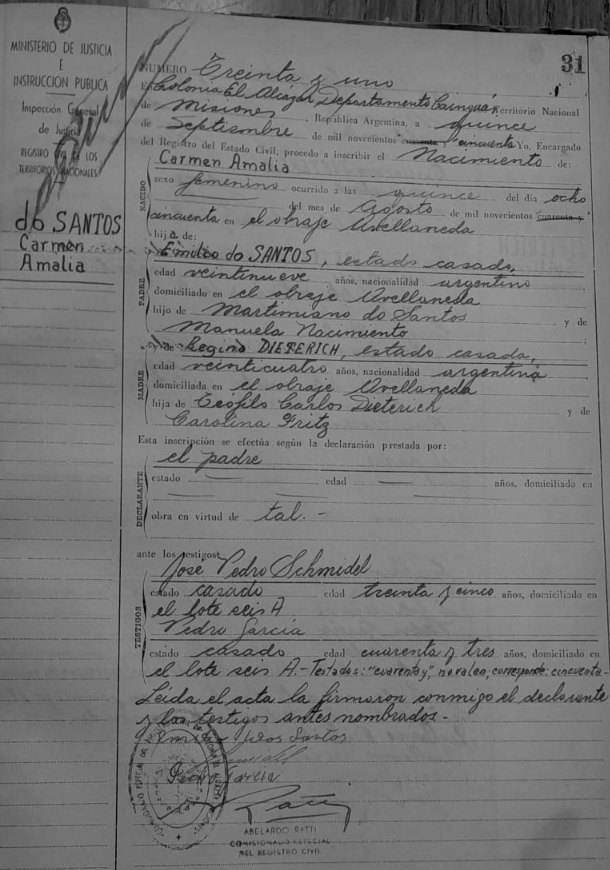 MINISTERIO DE JUSTICIA
E
INSTRUCCION PUBLICA
Inspección General
de Justicia
REGISTRO CIVIL DE LOS
TERRITORIOS NACIONALES
do SANTOS
Carmen
Amalia
31
NUMERO Treinta y uno
En Colonia El Alcázar, Departamento Cainguás, Territorio Nacional
de Misiones República Argentina, a quince
de Septiembre de mil novecientos cuarenta y cincuenta Yo, Encargado
del Registro del Estado Civil, procedo a inscribir el Nacimiento de:
Carmen Amalia
NACIDO
sexo femenino ocurrido a las quince del dia ocho
del mes de Agosto de mil novecientos cuarenta y
cincuenta en el obraje Avellaneda
hija de:
PADRE
Emilio do SANTOS, estado casado,
edad veintinueve años, nacionalidad argentino
domiciliado en el obraje Avellaneda
hijo de Martimiano do Santos y de
Manuela Nacimiento
MADRE
y de Regina DIETERICH, estado casada,
edad veinticuatro años, nacionalidad argentina
domiciliada en el obraje Avellaneda
hija de Teófilo Carlos Dieterich y de
Carolina Fritz
Esta inscripción se efectúa según la declaración prestada por:
DECLARANTE
el padre
estado edad años, domiciliado en
obra en virtud de tal.-
ante los testigos:
TESTIGOS
José Pedro Schmidel
estado casado edad treinta y cinco años, domiciliado en
el lote seis A
Pedro García
estado casado edad cuarenta y tres años, domiciliado en
el lote seis A.- Testados: "cuarenta y", no valea, corresponde: cincuenta.-
Leída el acta la firmaron conmigo el declarante
y los testigos antes nombrados.-
Emilio dos Santos
Pedro García
Ratti
ABELARDO RATTI
COMISIONADO ESPECIAL
DEL REGISTRO CIVIL